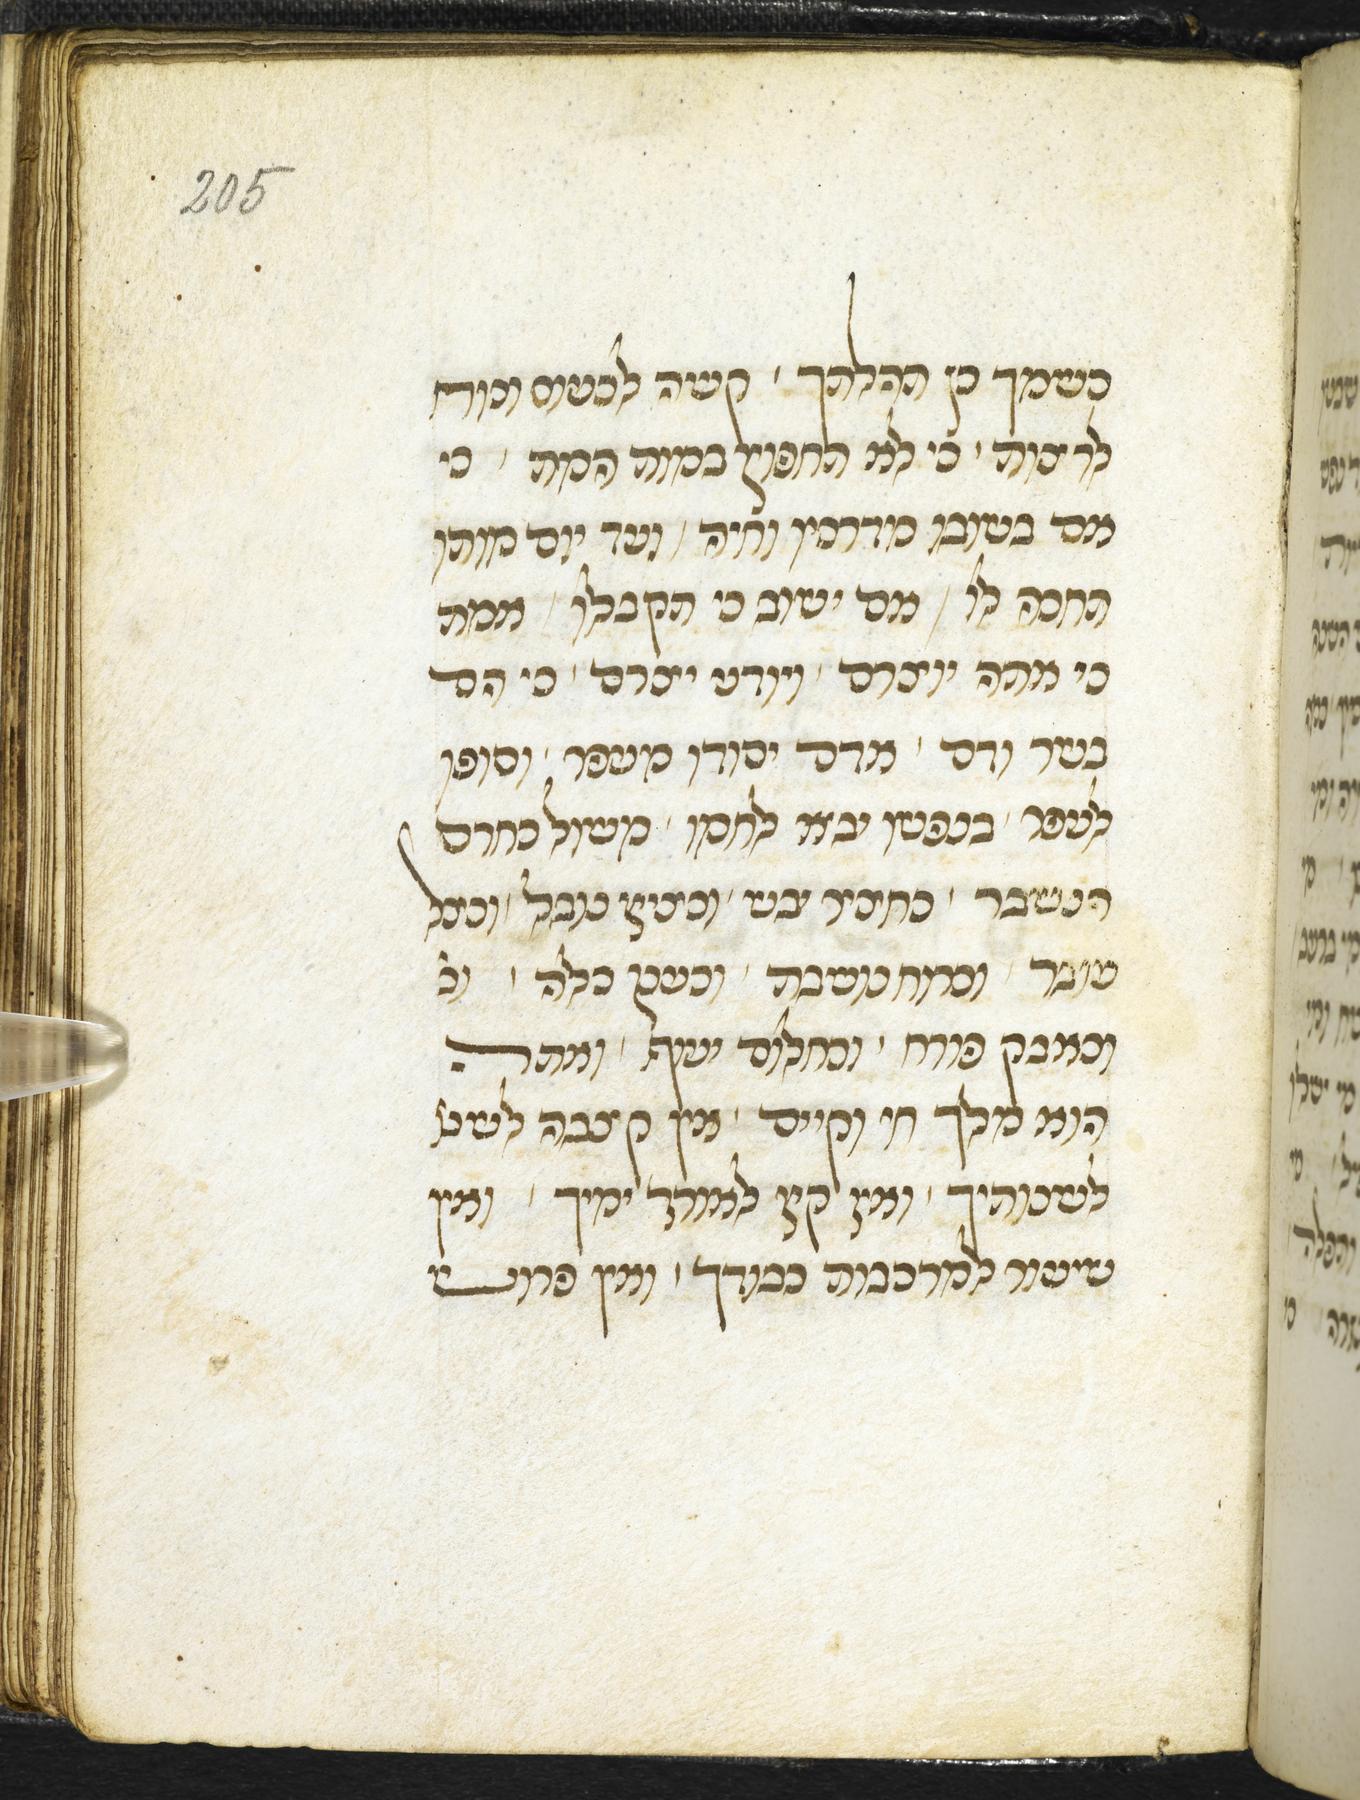 205
כשמך כן תהלתך ׳ קשה לכעוס ונוח
לרצות ׳ כי לא תחפוץ במות המת ׳ כי
אם בשובו מדרכיו וחיה ׳ ועד יום מותו
תחכה לו ׳ אם ישוב מי תקבלו ׳ אמת
כי אתה יוצרם ׳ ויודע יצרם ׳ כי הם
בשר ודם ׳ אדם יסודו מעפר ׳ וסופו
לעפר ׳ בנפשו יביא לחמו ׳ משול כחרס
הנשבר ׳ כחציר יבש ׳ וכציץ נובל ׳ וכצל
עובר ׳ וכרוח נושבת ׳ וכענן כלה ׳ וכ
וכאבק פורח ׳ וכחלום יעוף ׳ ואתה
הוא מלך חי וקיים ׳ אין קצבה לשנ
לשנותיך ׳ ואין קץ לאורך ימיך ׳ ואין
שיעור למרכבות כבודך ׳ ואין פרוש